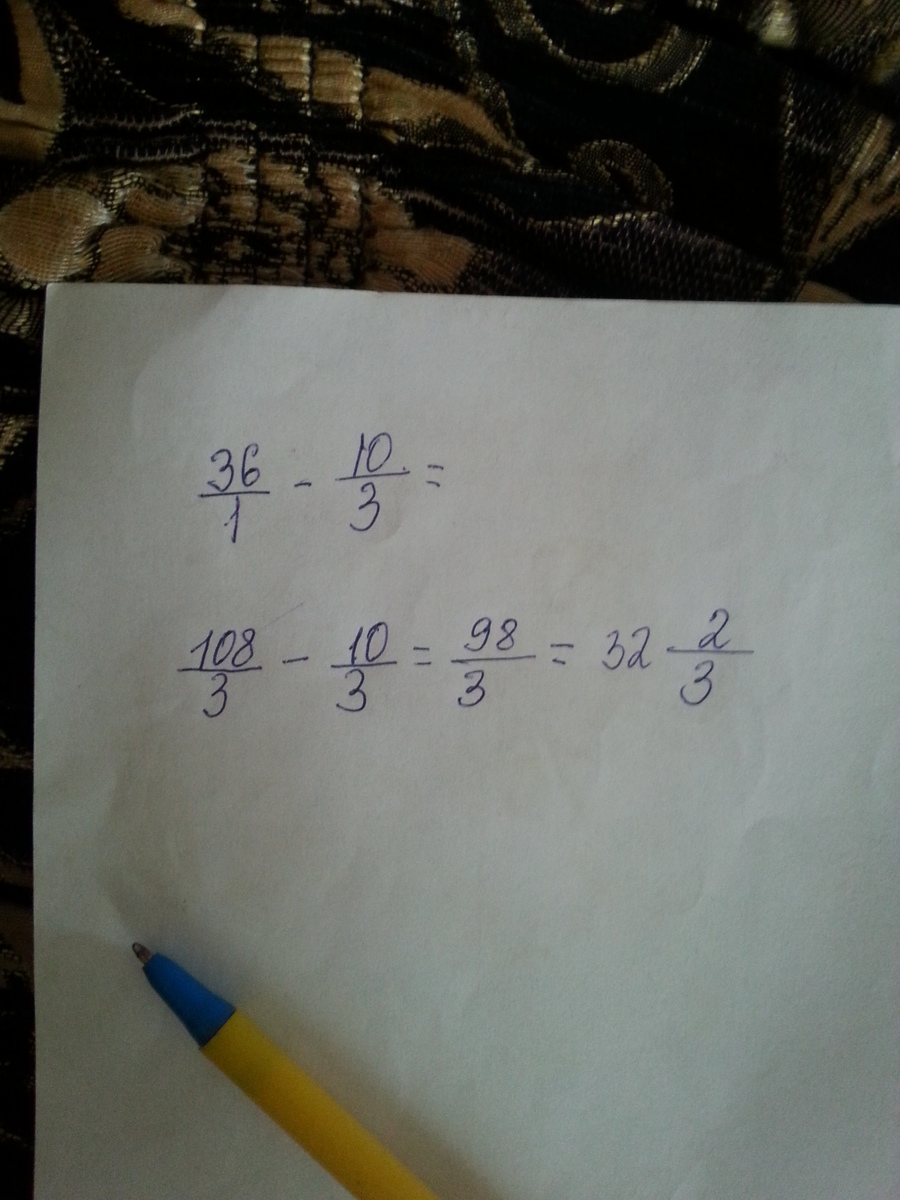 36/1 - 10/3 =
108/3 - 10/3 = 98/3 = 32 2/3